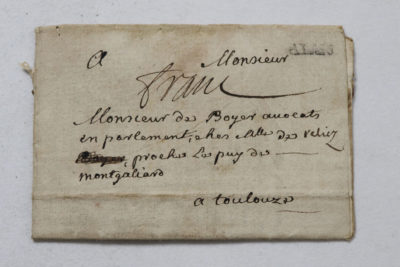 A Monsieur
franc
Monsieur de Boyer avocats
en parlement, ches Mlle de
proche Le puy de
montgaliard
a toulouze